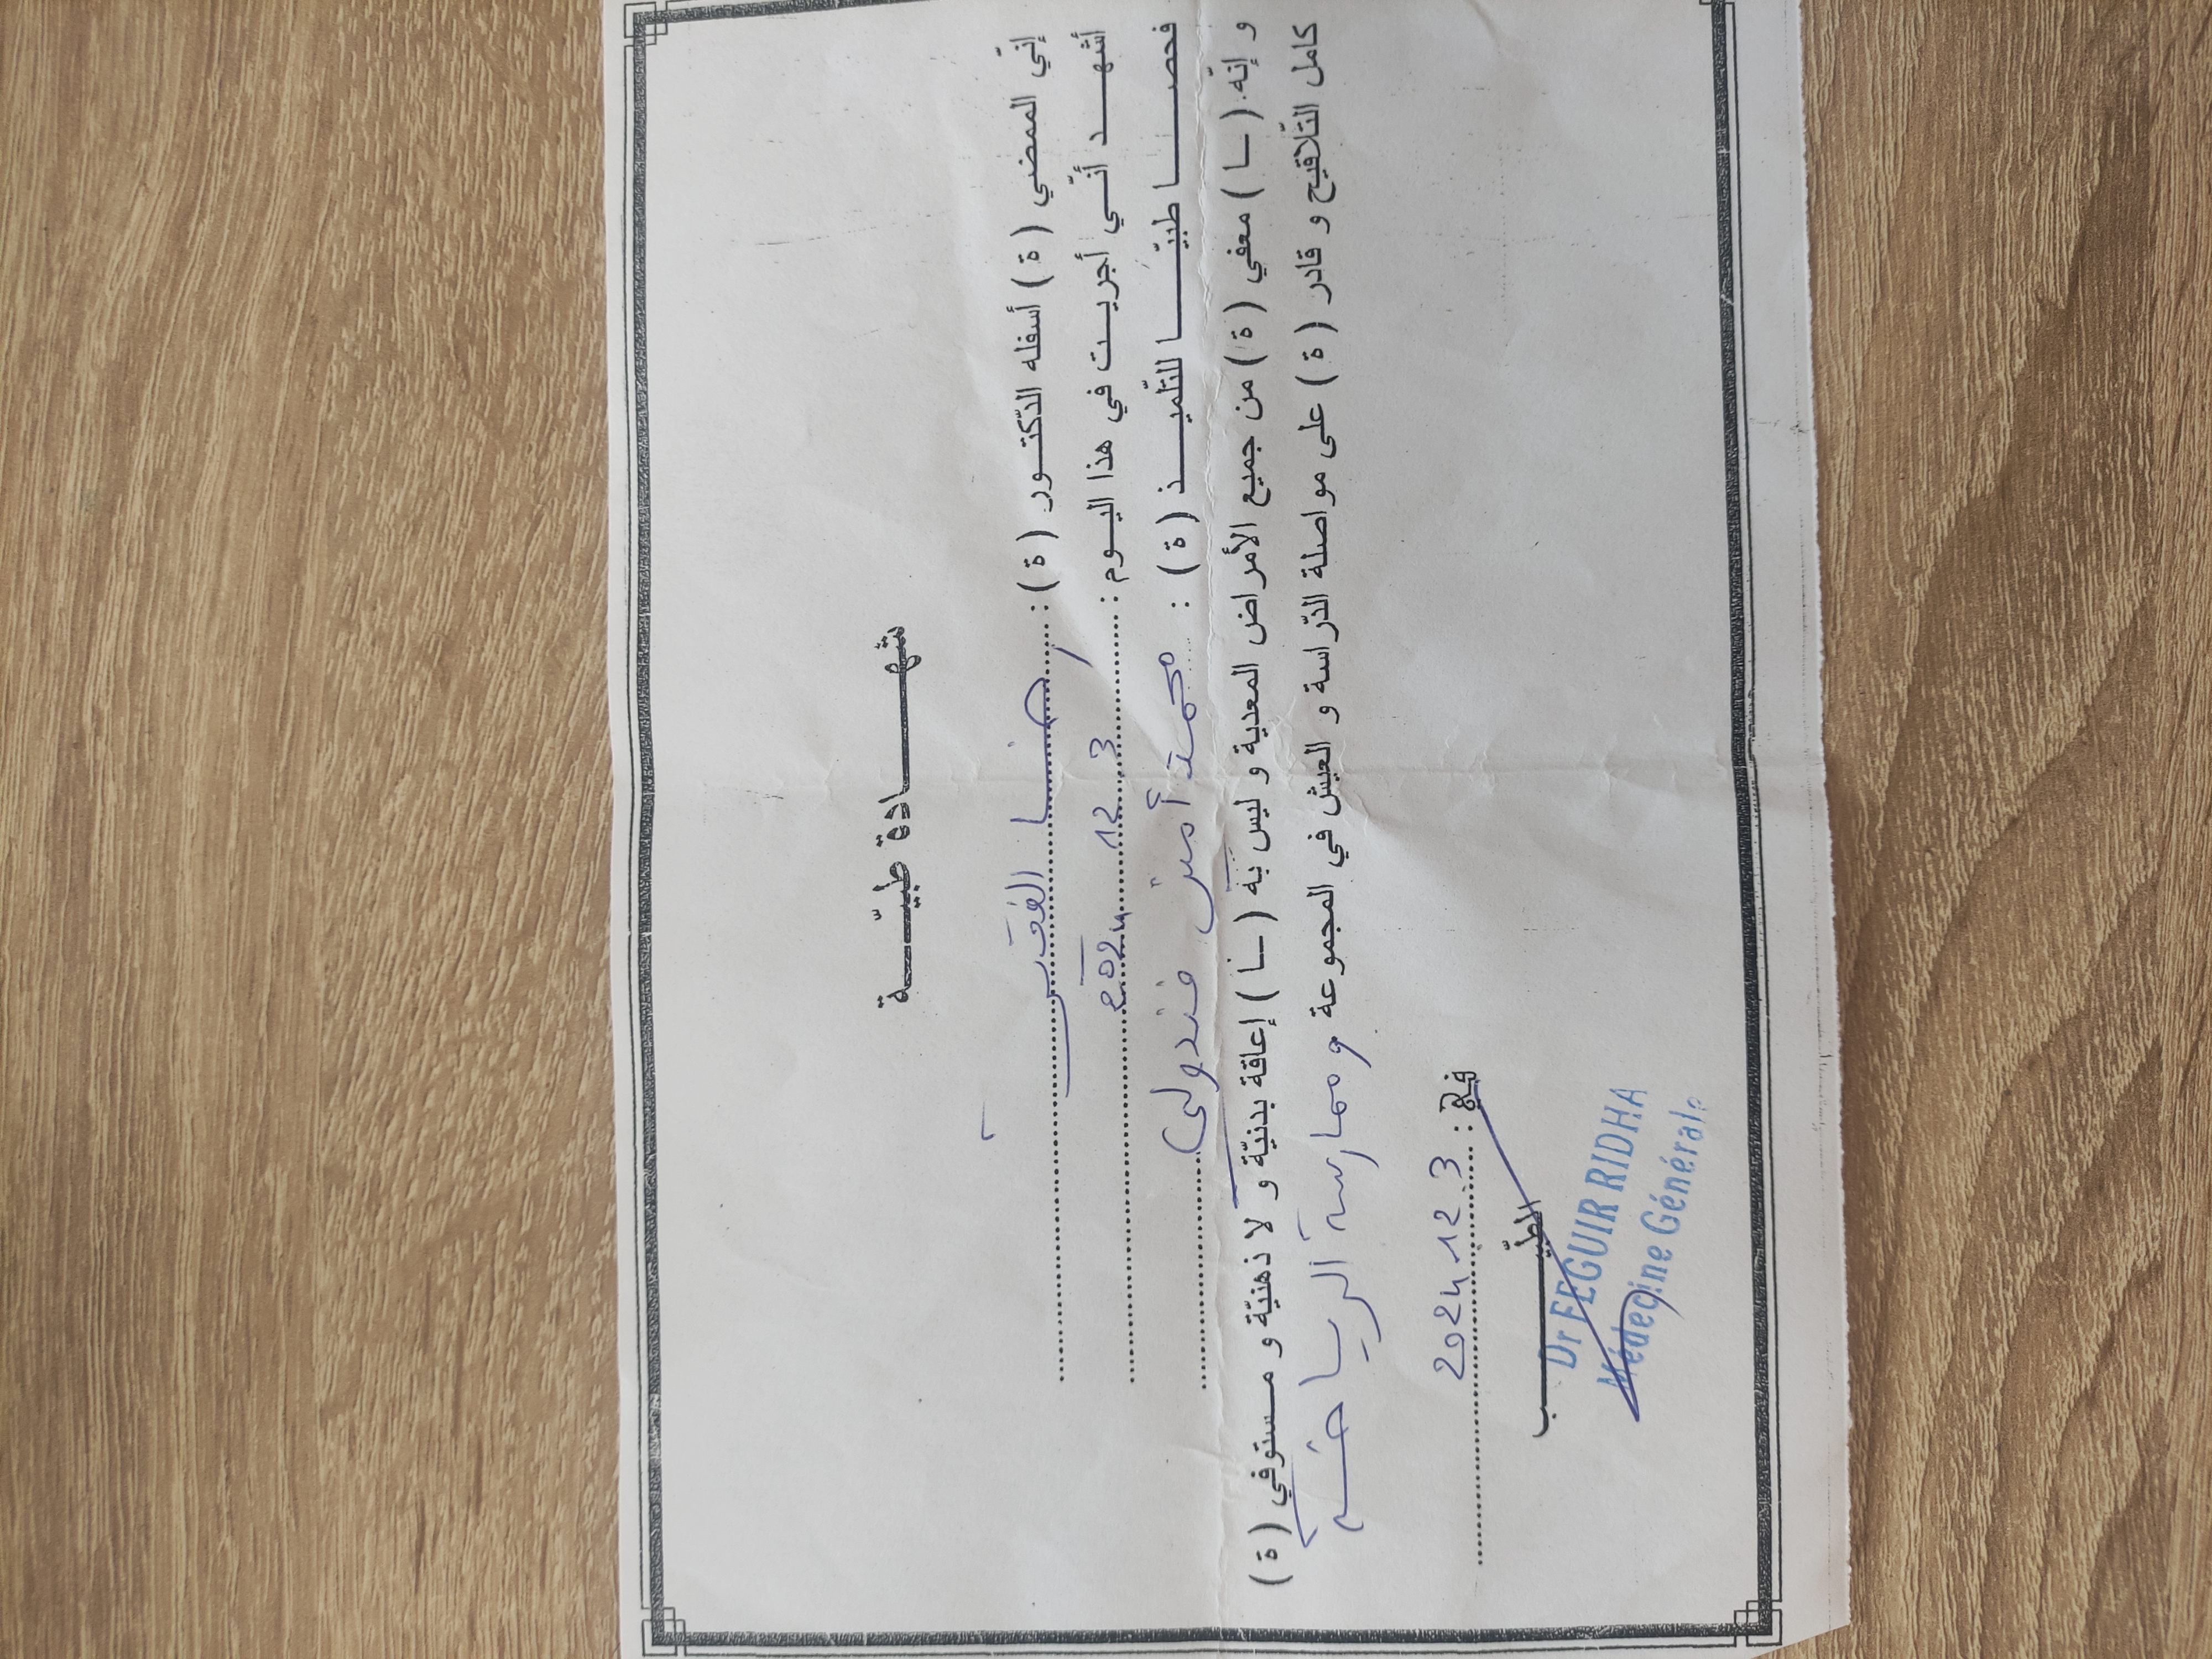 شهادة طبيّة
إنّي الممضي (ة) أسفله الدّكتور (ة) : رضا الفقير
أشهد أنّي أجريت في هذا اليوم : 3 12 2024
فحصا طبيّا للتّلميذ (ة) : محمد أمين فندولي
و إنّه (ـا) معفي (ة) من جميع الأمراض المعدية و ليس به (ـا) إعاقة بدنيّة و لا ذهنيّة و مستوفي (ة)
كامل التّلاقيح و قادر (ة) على مواصلة الدّراسة و العيش في المجموعة و ممارسة الرياضة
في : 3. 12. 2024
الطبيب
Dr FEGUIR RIDHA
Médecine Générale